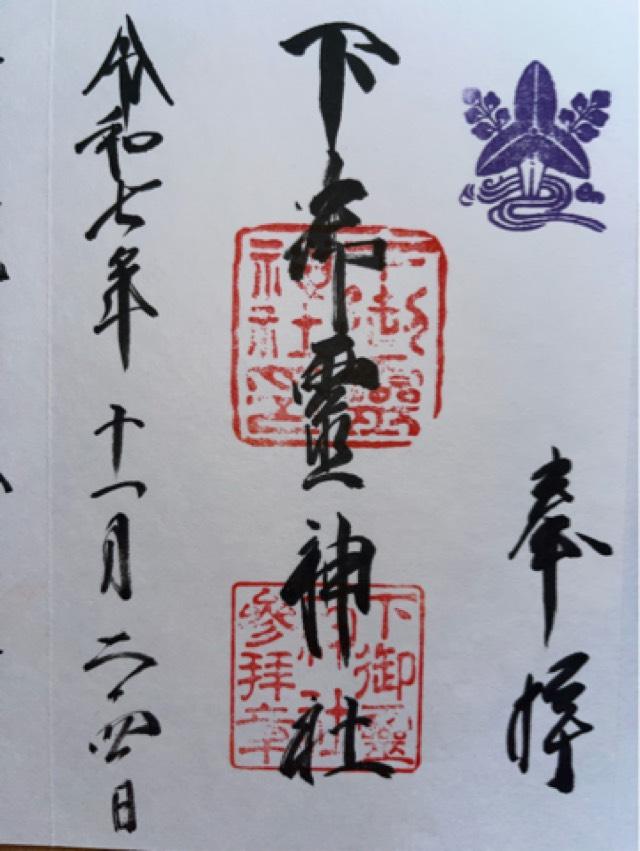 奉拝
下御靈神社
下御靈
神社印
下御靈
神社
參拝章
令和七年十一月二十四日